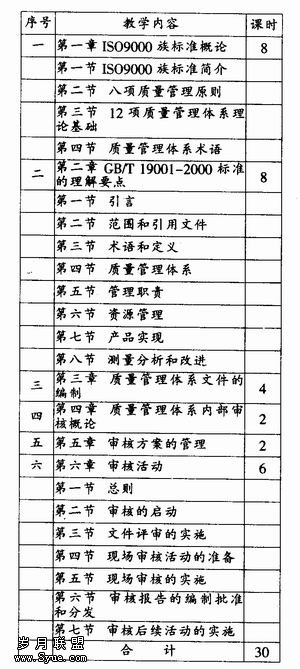 序号 教学内容 课时
一 第一章 ISO9000 族标准概论 8
第一节 ISO9000 族标准简介
第二节 八项质量管理原则
第三节 12 项质量管理体系理
论基础
第四节 质量管理体系术语
二 第二章 GB/T 19001-2000 标准 8
的理解要点
第一节 引言
第二节 范围和引用文件
第三节 术语和定义
第四节 质量管理体系
第五节 管理职责
第六节 资源管理
第七节 产品实现
第八节 测量分析和改进
三 第三章 质量管理体系文件的 4
编制
四 第四章 质量管理体系内部审 2
核概论
五 第五章 审核方案的管理 2
六 第六章 审核活动 6
第一节 总则
第二节 审核的启动
第三节 文件评审的实施
第四节 现场审核活动的准备
第五节 现场审核的实施
第六节 审核报告的编制批准
和分发
第七节 审核后续活动的实施
合计 30
岁月联盟
www.Syue.com